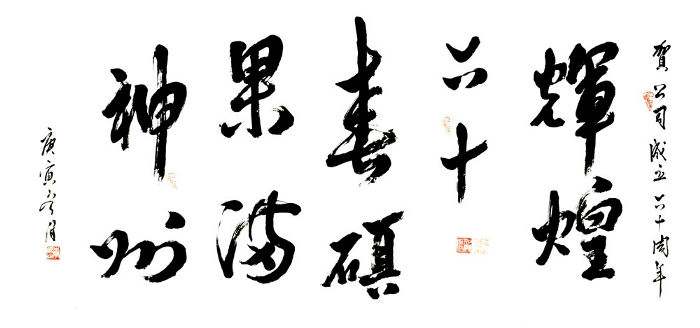 賀公司成立六十周年
輝煌
六十
春碩
果满
神州
庚寅冬月